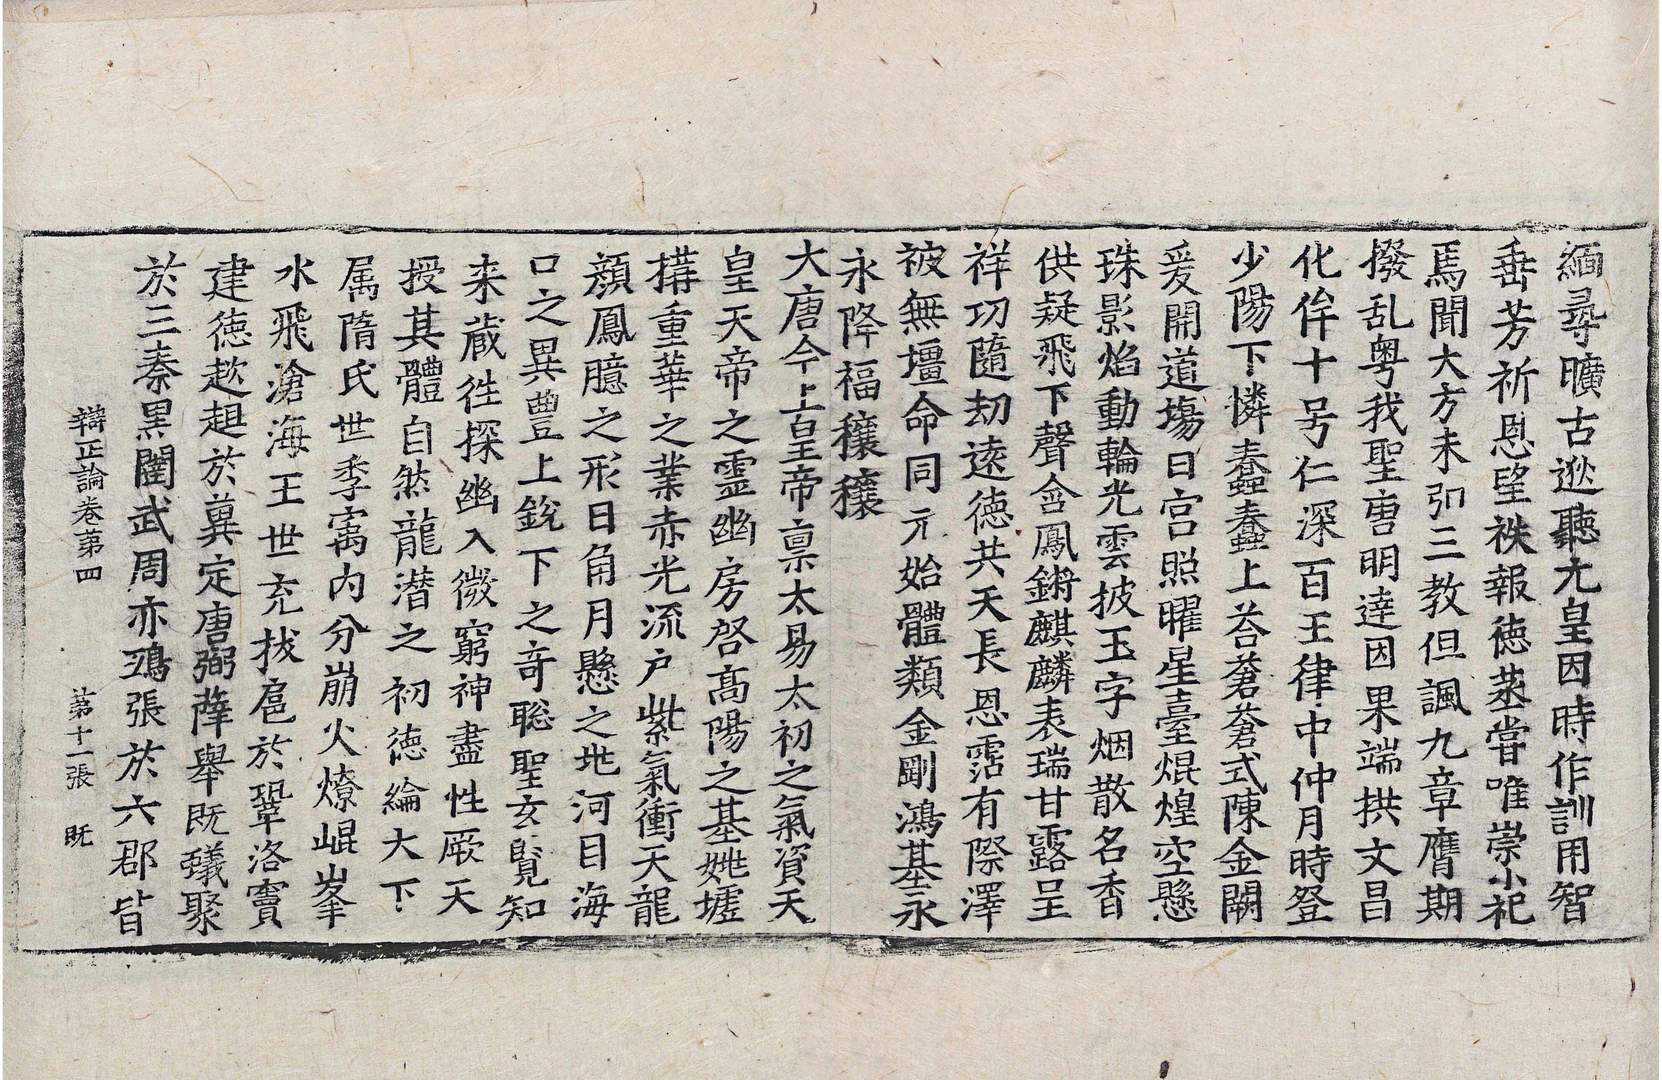 緬尋曠古逖聽九皇因時作訓用智
垂芳祈恩望袟報德蒸嘗唯崇小祀
焉聞大方未弘三教但諷九章膺期
撥乱粤我聖唐明達因果端拱文昌
化侔十号仁深百王律中仲月時登
少陽下憐蠢蠢上荅蒼蒼式陳金闕
爰開道場日宮照曜星臺焜煌空懸
珠影焰動輪光雲披玉字烟散名香
供疑飛下聲含鳳鏘麒麟表瑞甘露呈
祥功隨劫遠德共天長恩霑有際澤
被無壃命同元始體類金剛鴻基永
永降福穰穰
大唐今上皇帝禀太易太初之氣資天
皇天帝之靈幽房啓髙陽之基姚墟
搆重華之業赤光流户紫氣衝天龍
顏鳳臆之形日角月懸之地河目海
口之異豐上銳下之奇聡聖玄覽知
来蔵徃探幽入微窮神盡性厥天
授其體自然龍潜之初徳綸大下
属隋氏世季㝢内分崩火燎崐峯
水飛滄海王世充拔扈於鞏洛竇
建徳趑趄於冀定唐弼薩舉既蟻聚
於三秦黒闥武周亦鴟張於六郡皆
辯正論卷苐四　苐十一張　既